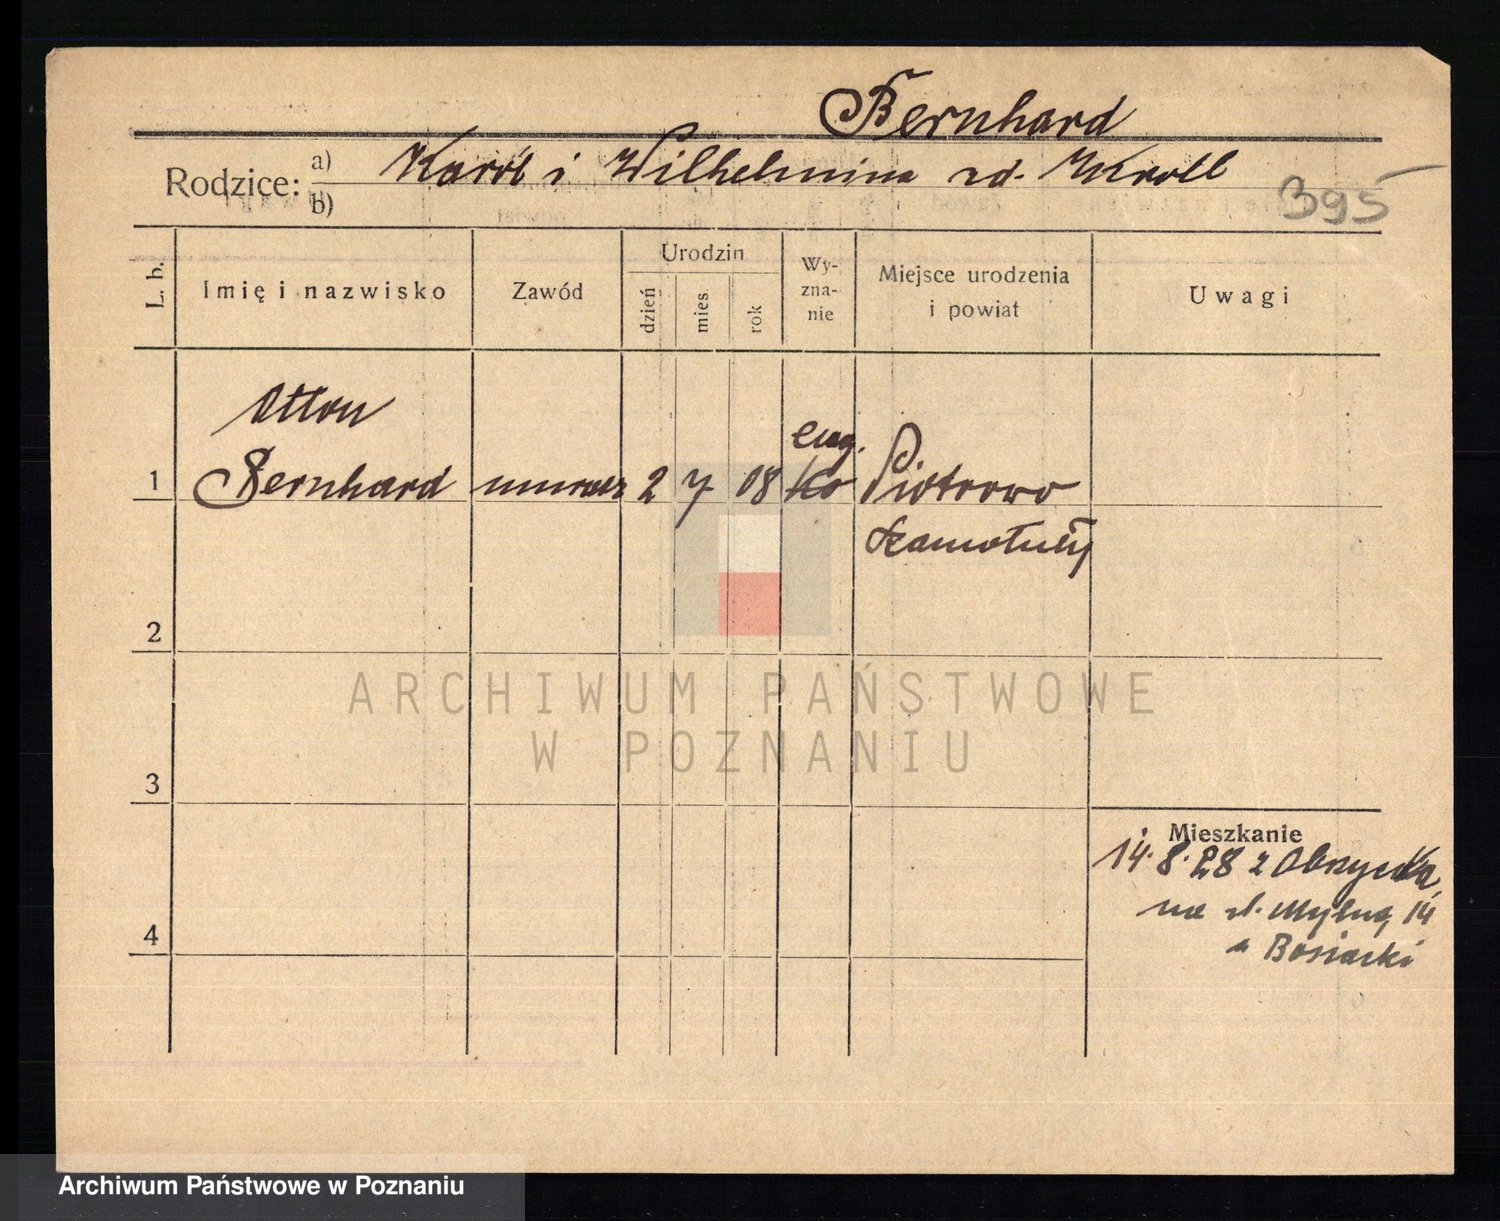 Bernhard
Rodzice: a) Karol i Wilhelmina zd. Kroll
b)
395
L. b.
Imię i nazwisko
Zawód
Urodzin
dzień
mies
rok
Wy-
zna-
nie
Miejsce urodzenia
i powiat
Uwagi
Otton
ewg.
1 Bernhard murarz 2 7 08 Ko Piotrowo
Szamotuły
2
ARCHIWUM PAŃSTWOWE
W POZNANIU
3
Mieszkanie
14. 8. 28 z Obrzycka
na ul. Mylną 14
Bosiacki
4
Archiwum Państwowe w Poznaniu